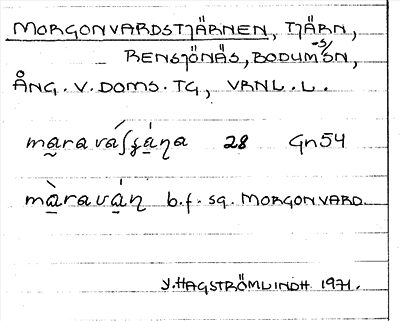 MORGONVARDSTJÄRNEN, TJÄRN,
RENSJÖNÄS, BODUM -S/SN,
ÅNG. V. DOMS. TG, VRNL. L.
28 Gn54
b.f. sg. MORGONVARD.
J. HAGSTRÖMLINDH 1971.